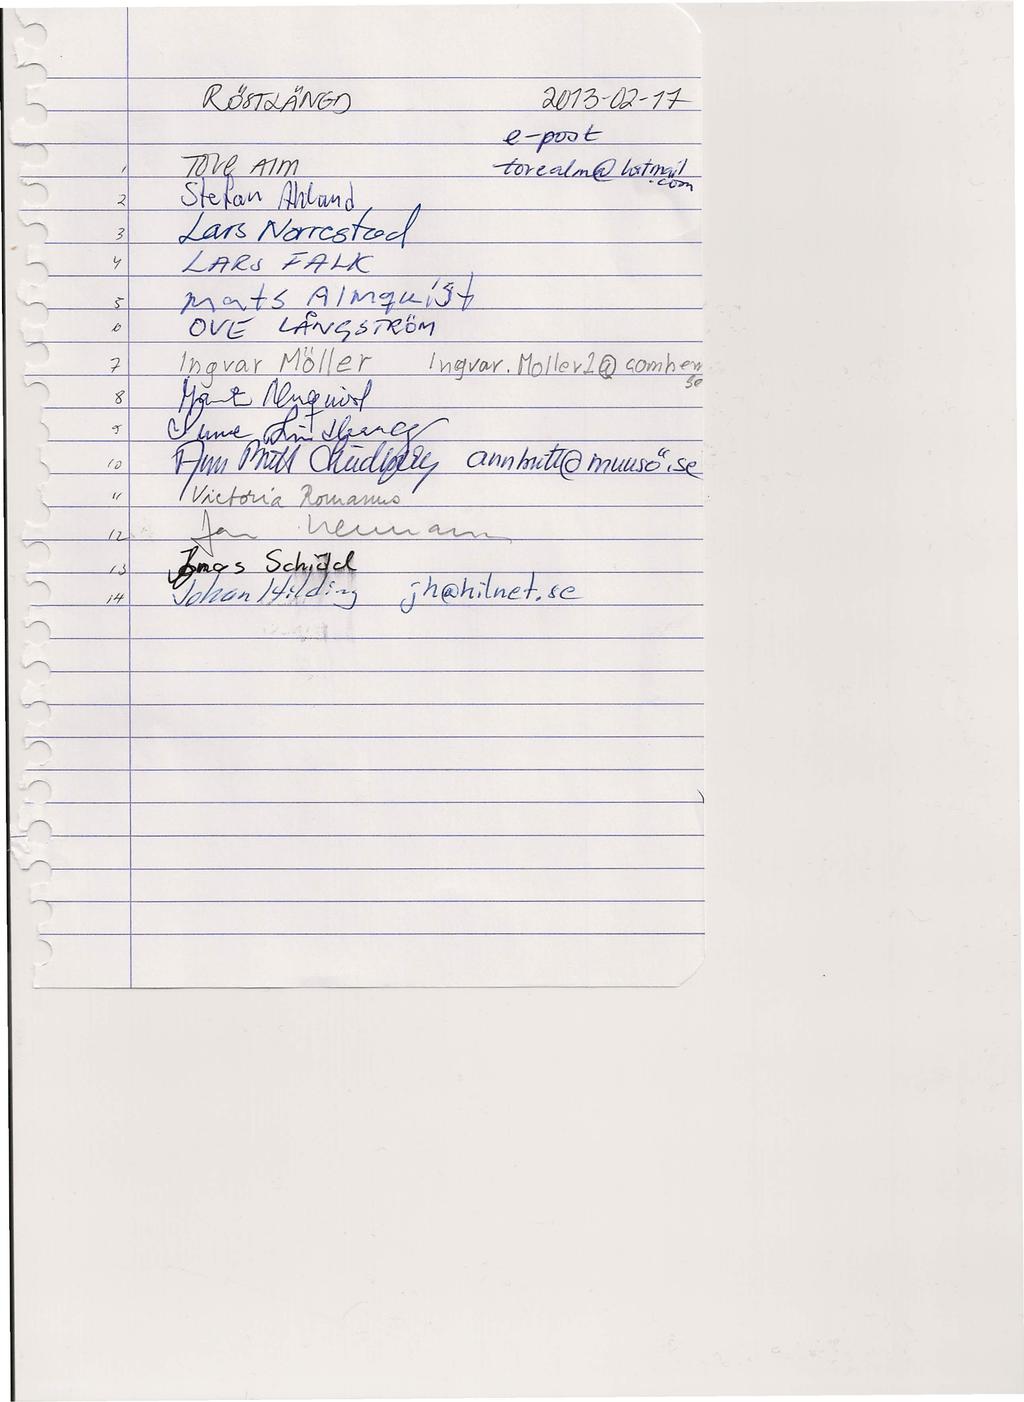 RÖSTLÄNGD 2013-02-17
e-post
1 Tove Alm tovealm@hotmail.com
2 Stefan Ahland
3 Lars Norrestad
4 LARS FALK
5 mats Almquist
6 OVE LÅNGSTRÖM
7 Ingvar Möller Ingvar.Moller2@comhem
se
8 Almquist
9
10 Ann Britt annbritt@muusö.se
11 Victoria Romanus
12 Jan Neumann
13 Jonas Schiöld
14 Johan Hilding jh@hilnet.se